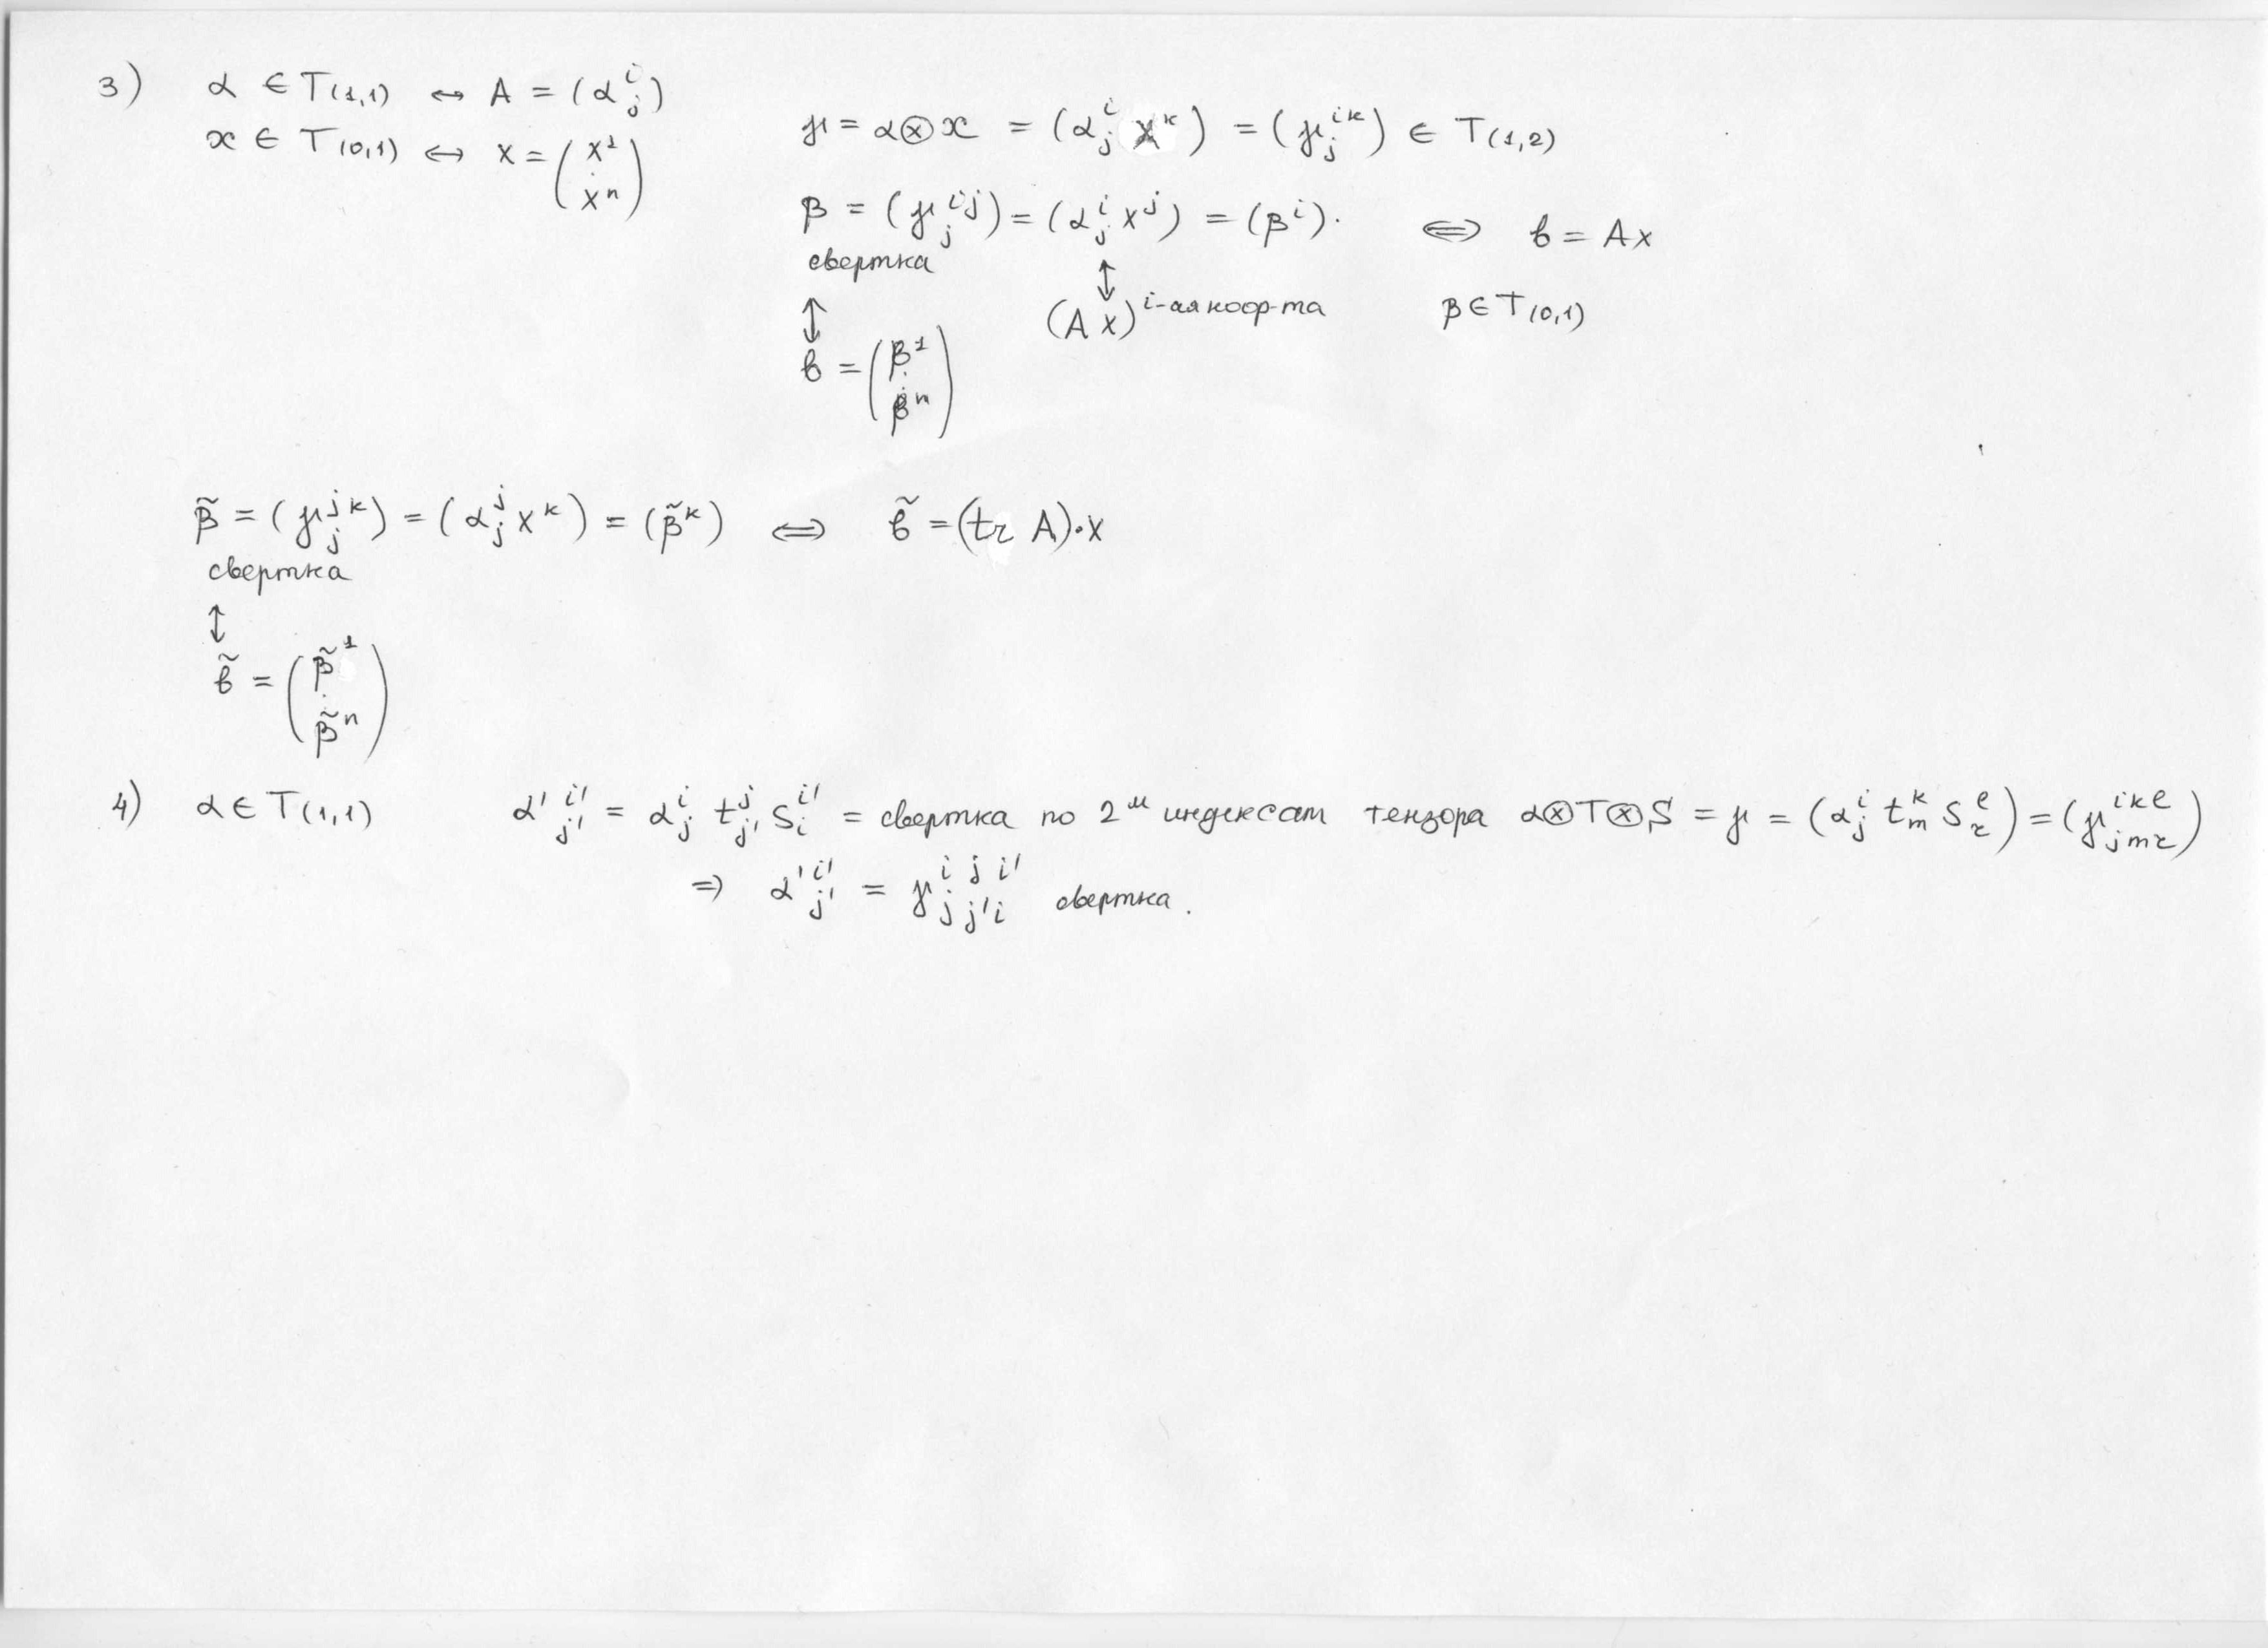 3) α ∈ T(1,1) ↔ A = (α^i_j)
x ∈ T(0,1) ↔ x = (x^1 . x^n)
γ = α⊗x = (α^i_j x^k) = (γ^{ik}_j) ∈ T(1,2)
β = (γ^{ij}_j) = (α^i_j x^j) = (β^i). ⇔ b = Ax
свертка
↕ ↕
(Ax)^{i-ая коор-та} β ∈ T(0,1)
b = (β^1 . β^n)
β̃ = (γ^{jk}_j) = (α^j_j x^k) = (β̃^k) ⇔ b̃ = (tr A)·x
свертка
↕
b̃ = (β̃^1 . β̃^n)
4) α ∈ T(1,1) α'^{i'}_{j'} = α^i_j t^j_{j'} s^{i'}_i = свертка по 2^м индексам тензора α⊗T⊗S = γ = (α^i_j t^k_m s^e_r) = (γ^{ike}_{jmr})
⇒ α'^{i'}_{j'} = γ^{i j i'}_{j j' i} свертка.